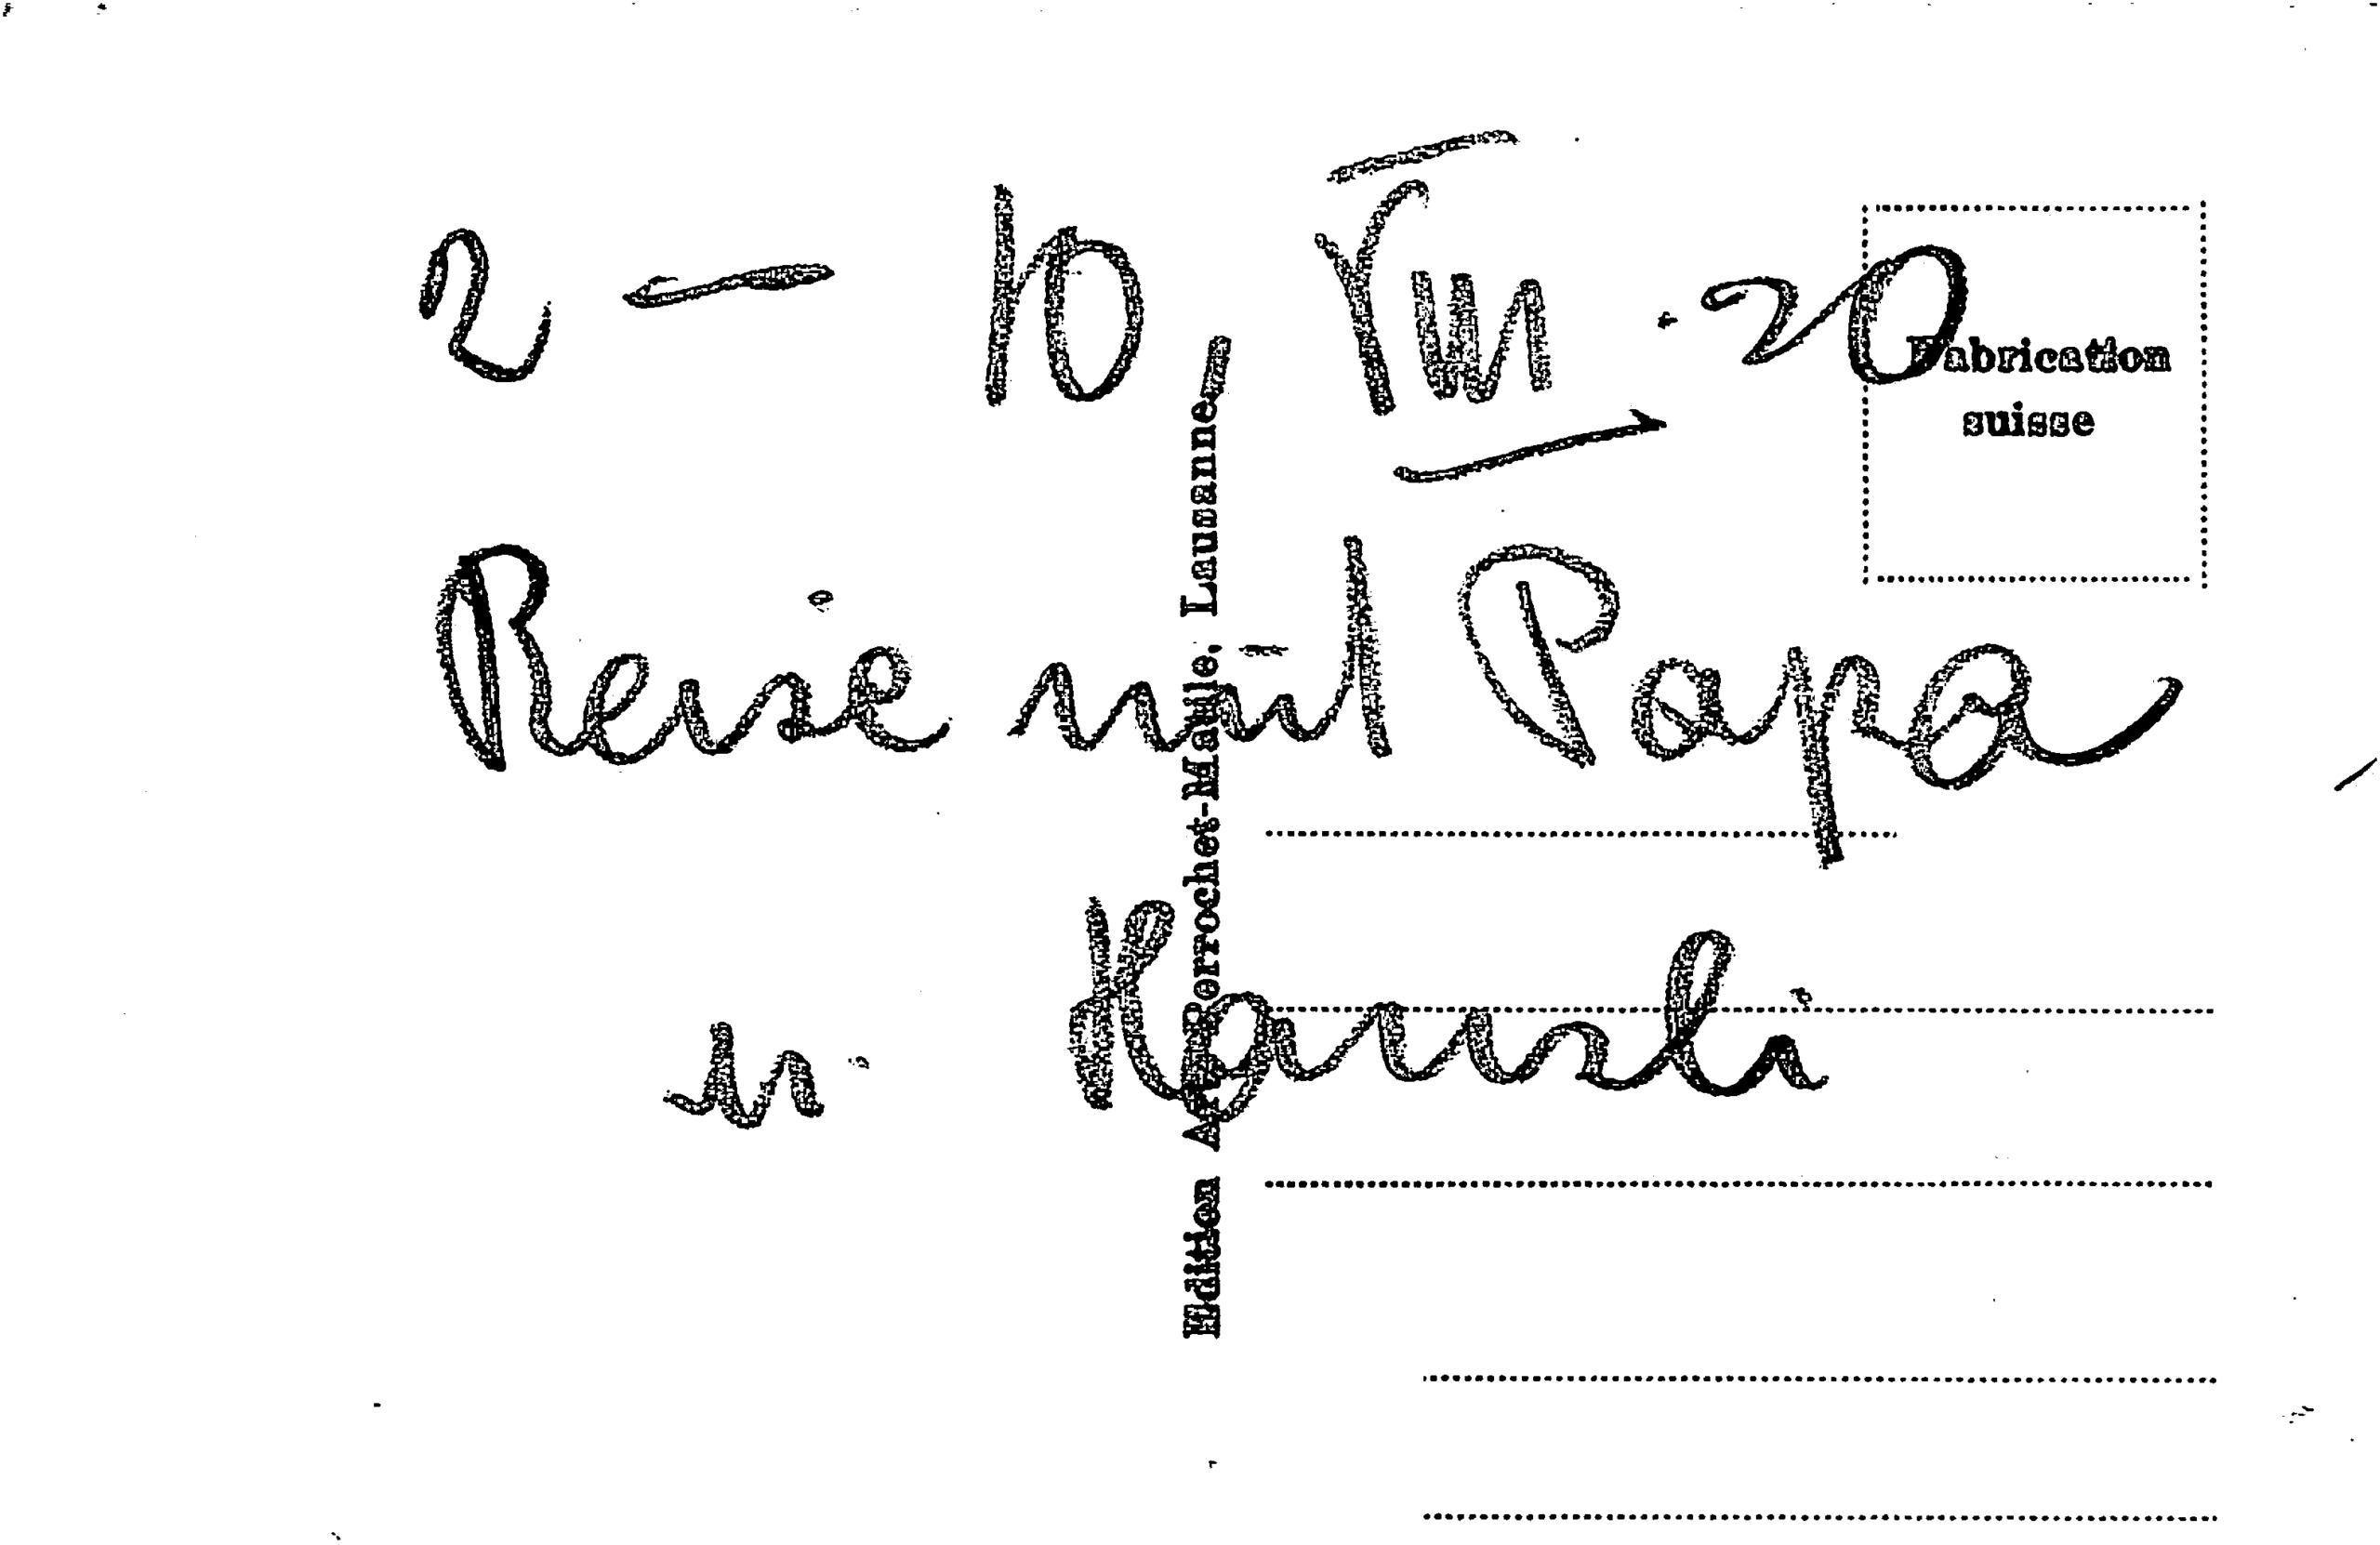 2 — 10, VIII. 20
Fabrication
suisse
Reise mit Papa,
u. Hansli
Edition Art. Perrochet-Matile, Lausanne